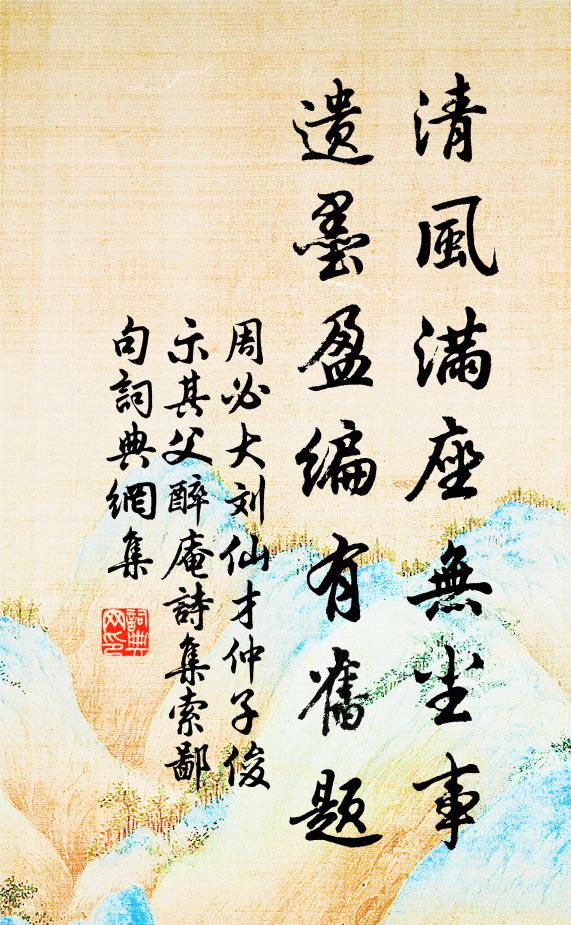 清風满座無尘事
遗墨盈编有舊题
周必大刘仙才仲子俊
示其父醉庵詩集索鄙
句詞典網集
詞典
网印